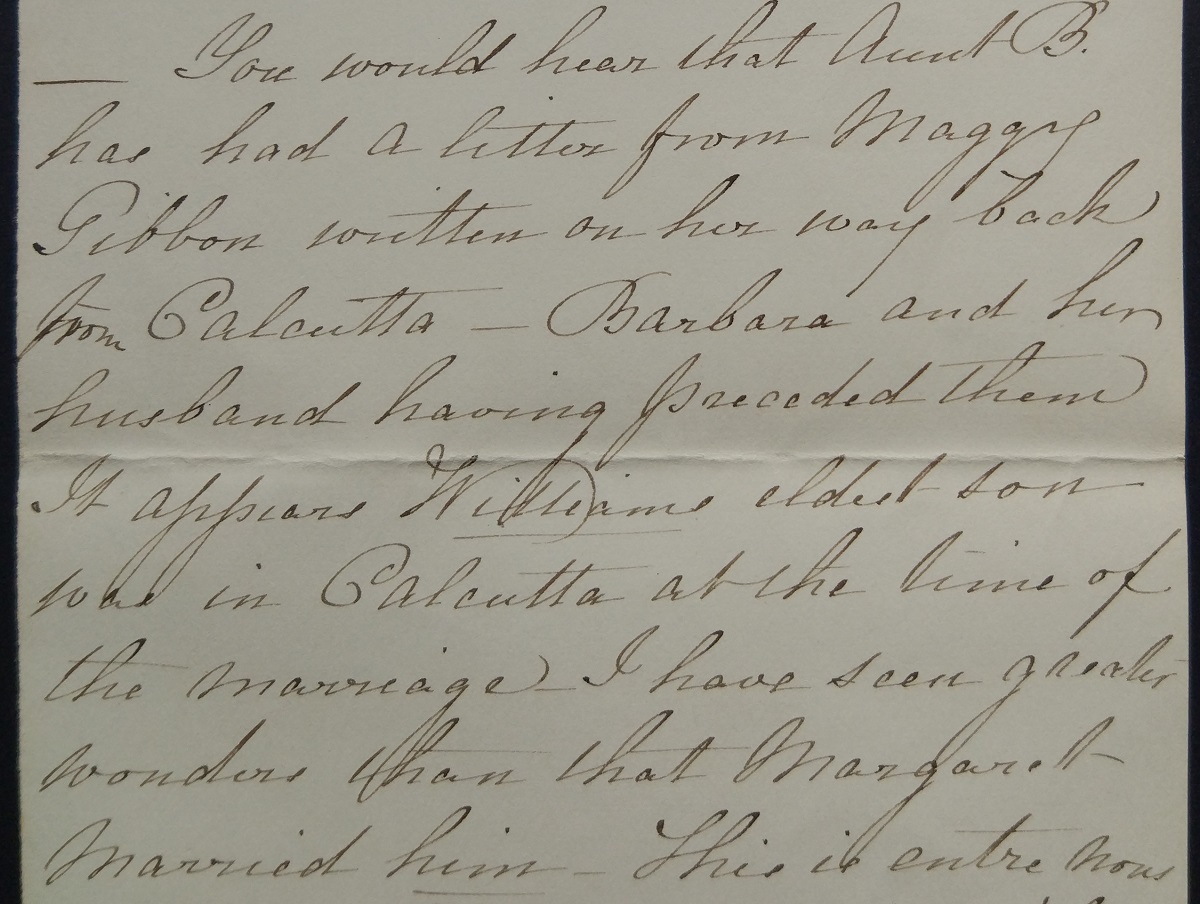 — You would hear that Aunt B.
has had a letter from Maggy
Gibbon written on her way back
from Calcutta — Barbara and her
husband having preceded them
It appears Williams eldest son
was in Calcutta at the time of
the marriage — I have seen greater
wonders than that Margaret
married him — This is entre nous